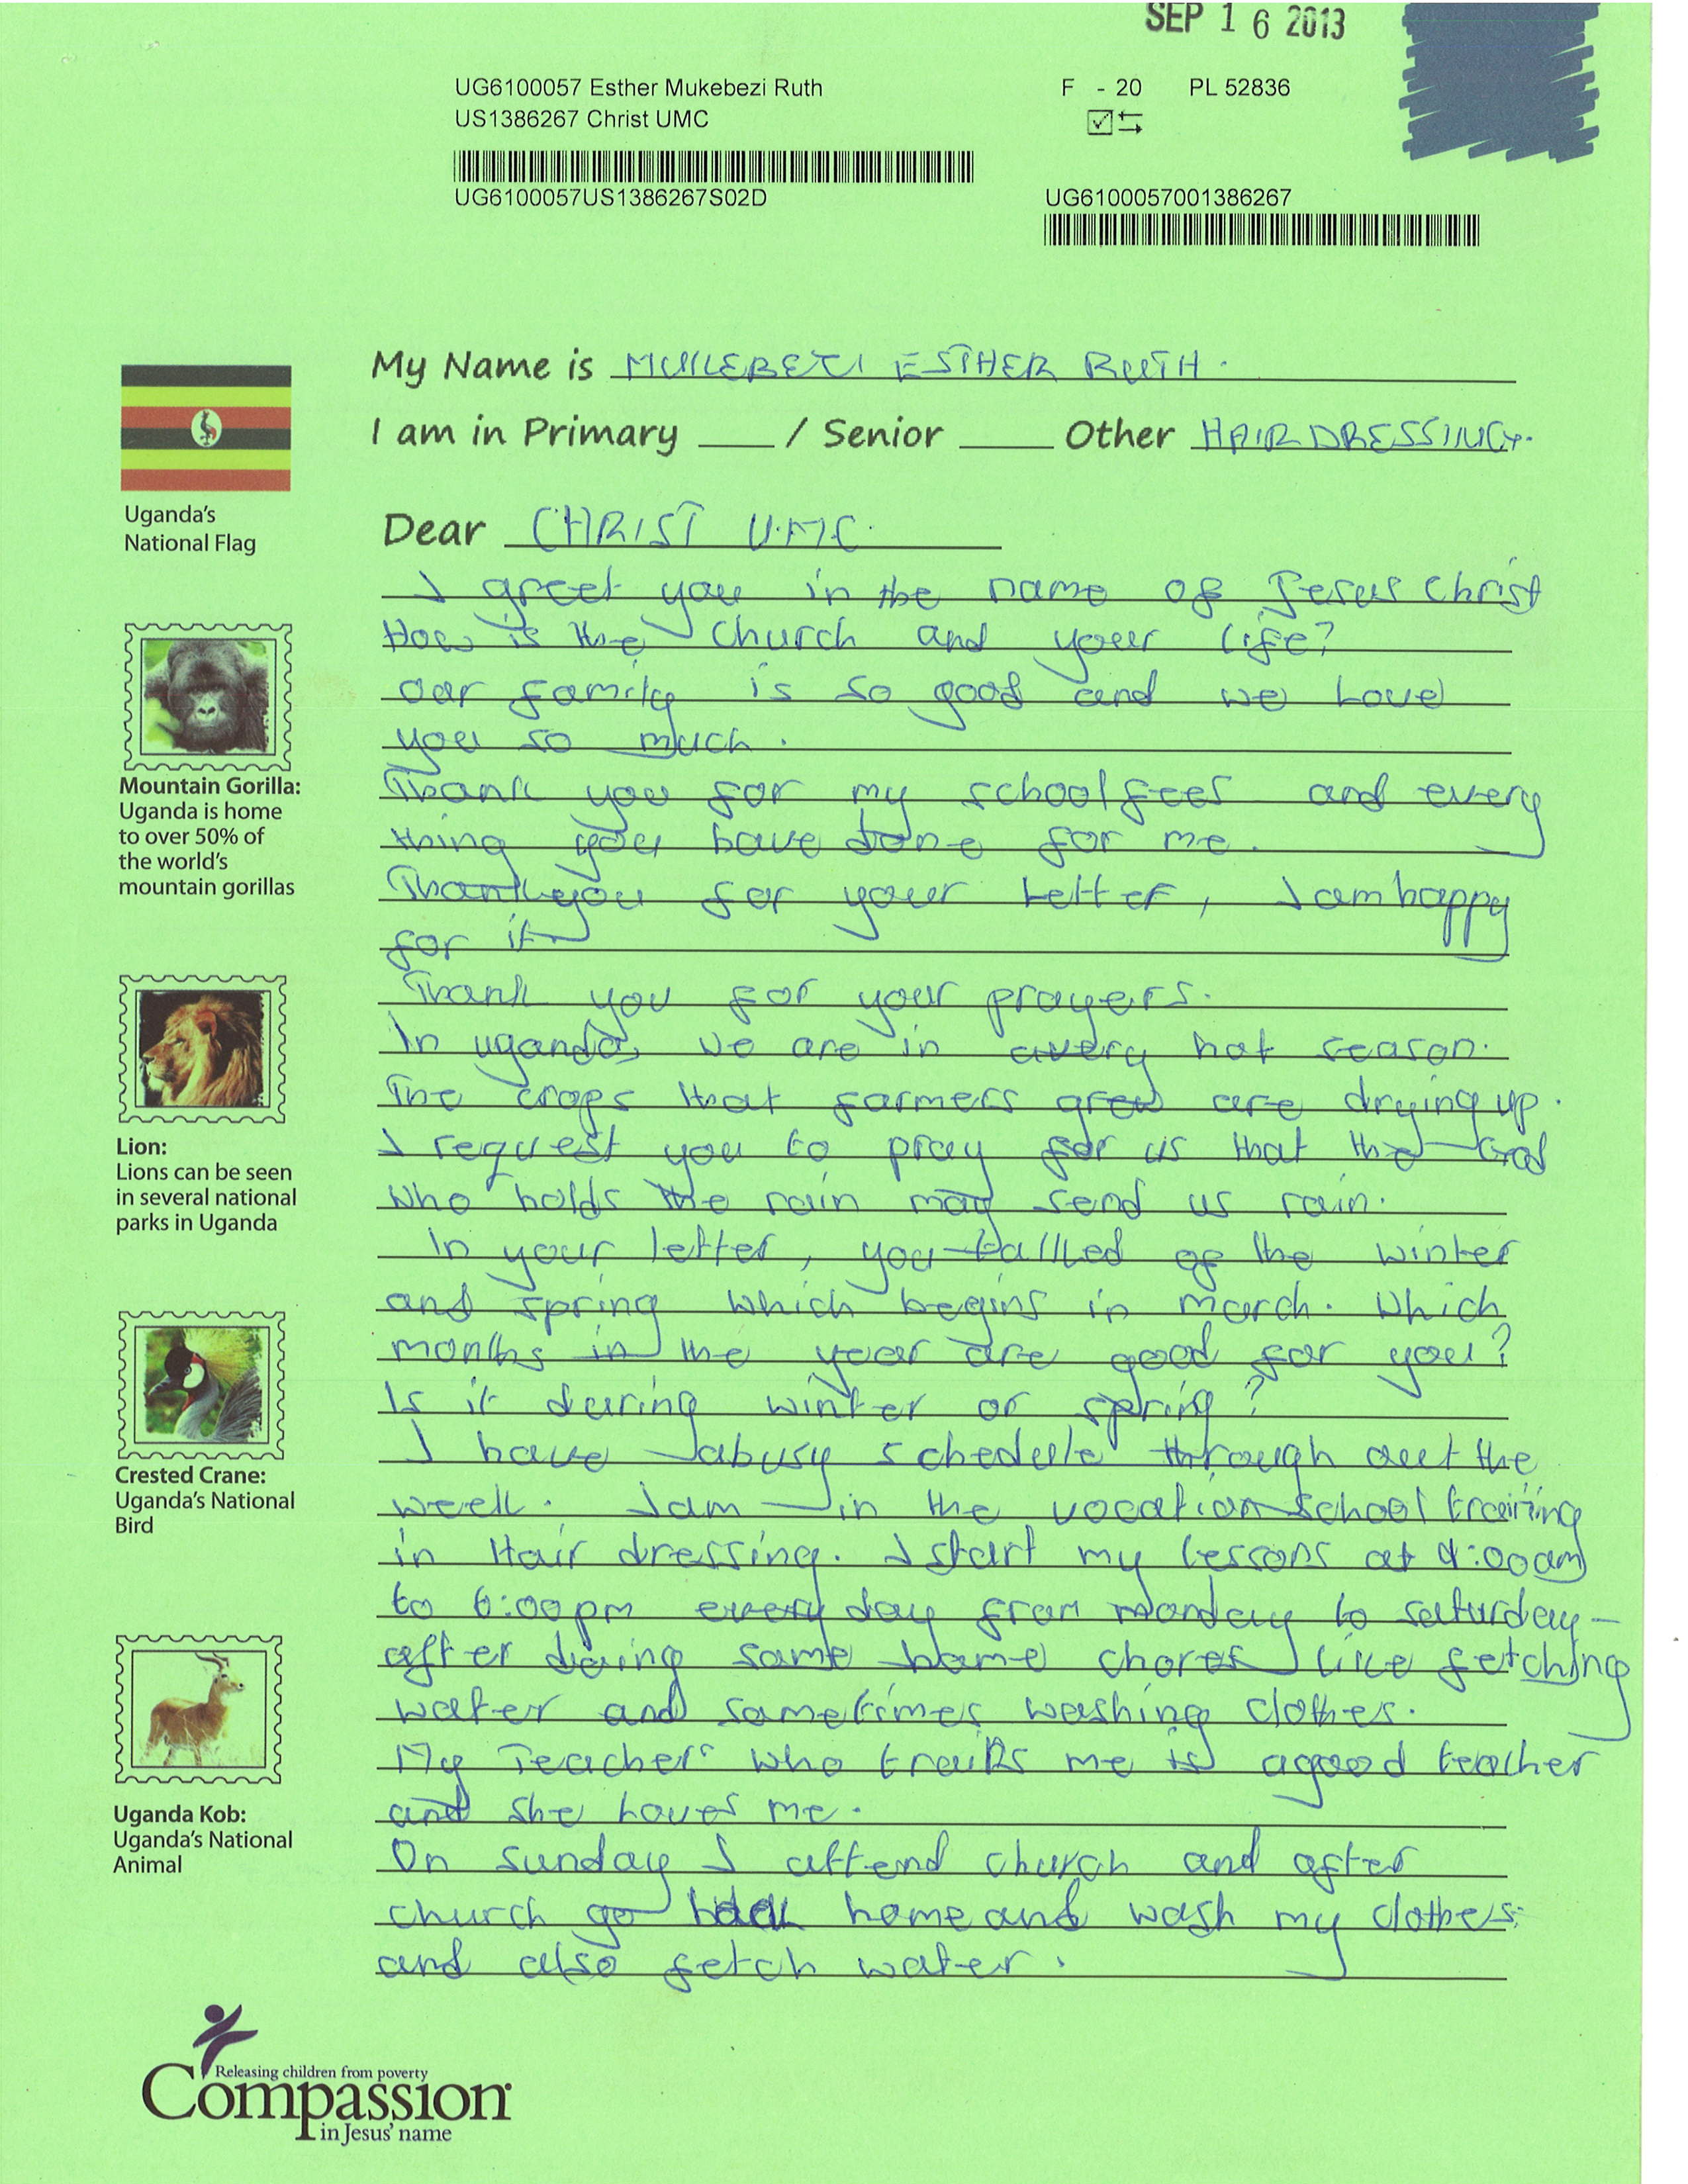 SEP 16 2013
UG6100057 Esther Mukebezi Ruth
F - 20 PL 52836
US1386267 Christ UMC
UG6100057US1386267S02D
UG6100057001386267
My Name is MUKEBEZI ESTHER RUTH.
I am in Primary ___ / Senior ___ Other HAIRDRESSING.
Uganda's
National Flag
Dear CHRIST U.M.C.
I greet you in the name of Jesus Christ
How is the church and your life?
Our family is so good and we Love
you so much.
Thank you for my school fees and every
thing you have done for me.
Thank you for your Letter, I am happy
for it
Thank you for your prayers.
In uganda, we are in avery hot season.
The crops that farmers grew are drying up.
I request you to pray for us that the God
who holds the rain may send us rain.
In your letter, you talked of the winter
and spring which begins in march. Which
months in the year are good for you?
Is it during winter or spring?
I have abusy schedule through out the
week. I am in the vocation school training
in Hair dressing. I start my lessons at 9:00am
to 6:00pm every day from monday to saturday-
after doing some home chores like fetching
water and sometimes washing clothes.
My Teacher who trains me is agood teacher
and she Loves me.
On sunday I attend church and after
church go back home and wash my clothes
and also fetch water.
Mountain Gorilla:
Uganda is home
to over 50% of
the world's
mountain gorillas
Lion:
Lions can be seen
in several national
parks in Uganda
Crested Crane:
Uganda's National
Bird
Uganda Kob:
Uganda's National
Animal
Releasing children from poverty
Compassion
in Jesus' name